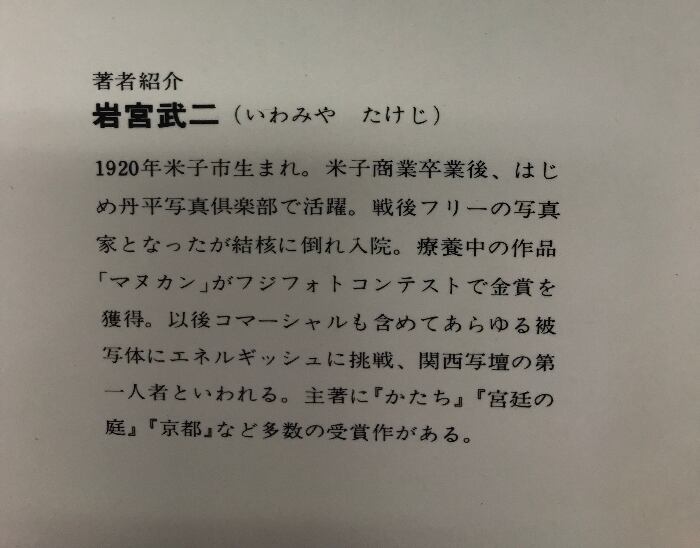 著者紹介
岩宮武二（いわみや　たけじ）
1920年米子市生まれ。米子商業卒業後、はじ
め丹平写真倶楽部で活躍。戦後フリーの写真
家となったが結核に倒れ入院。療養中の作品
「マヌカン」がフジフォトコンテストで金賞を
獲得。以後コマーシャルも含めてあらゆる被
写体にエネルギッシュに挑戦、関西写壇の第
一人者といわれる。主著に『かたち』『宮廷の
庭』『京都』など多数の受賞作がある。